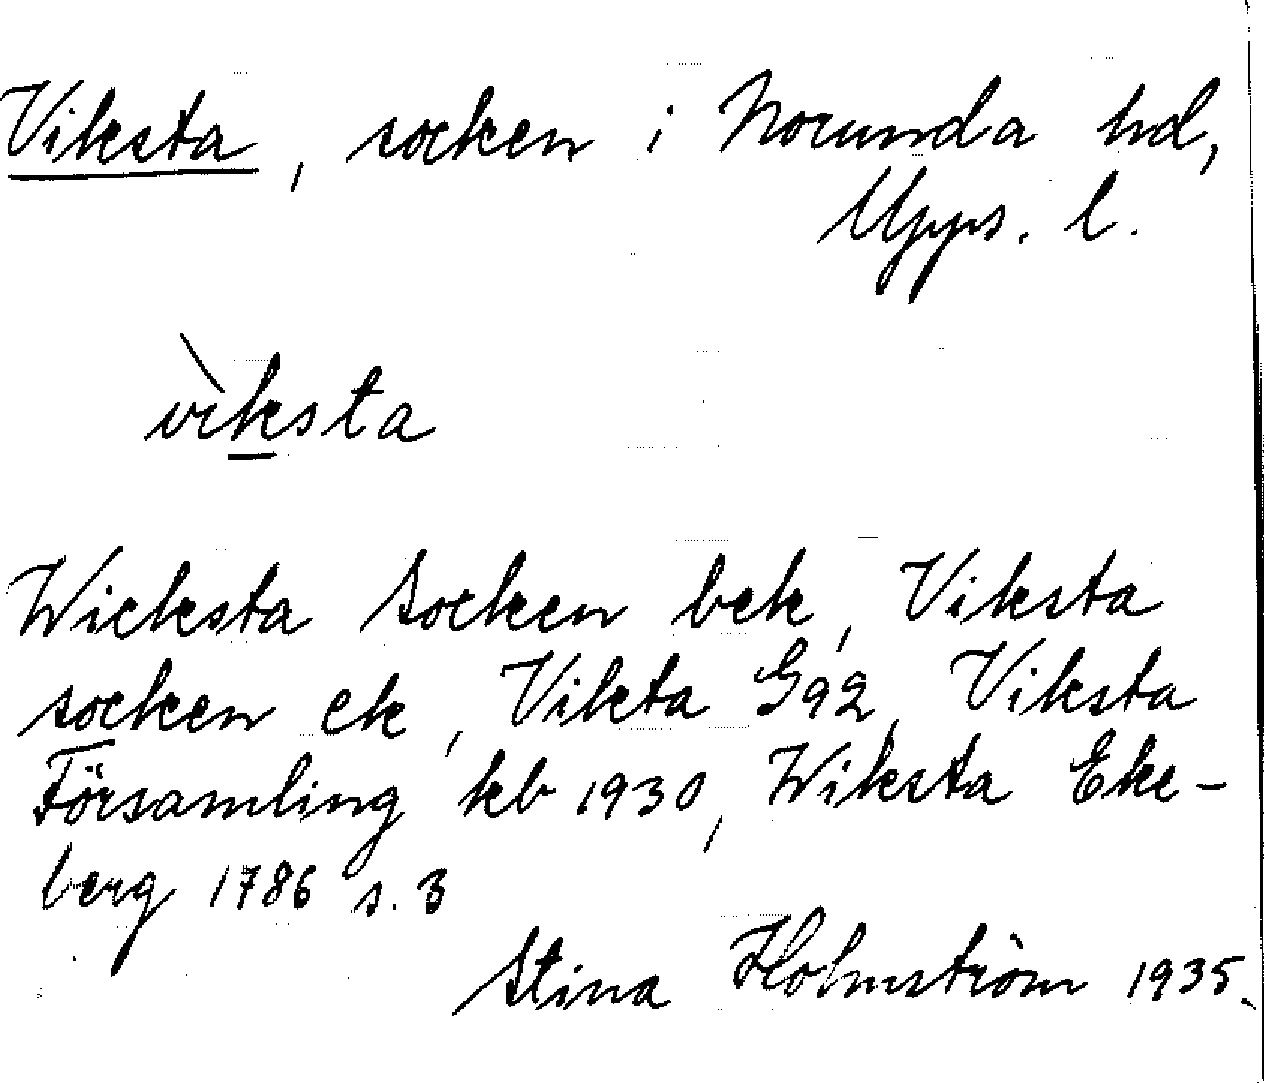 Viksta, socken i Norunda hd,
Upps. l.
vìksta
Wicksta Socken bek, Viksta
socken ek, Vikta Ga2, Viksta
Församling kb 1930, Wiksta Eke-
berg 1786 s. 3
Stina Holmström 1935.